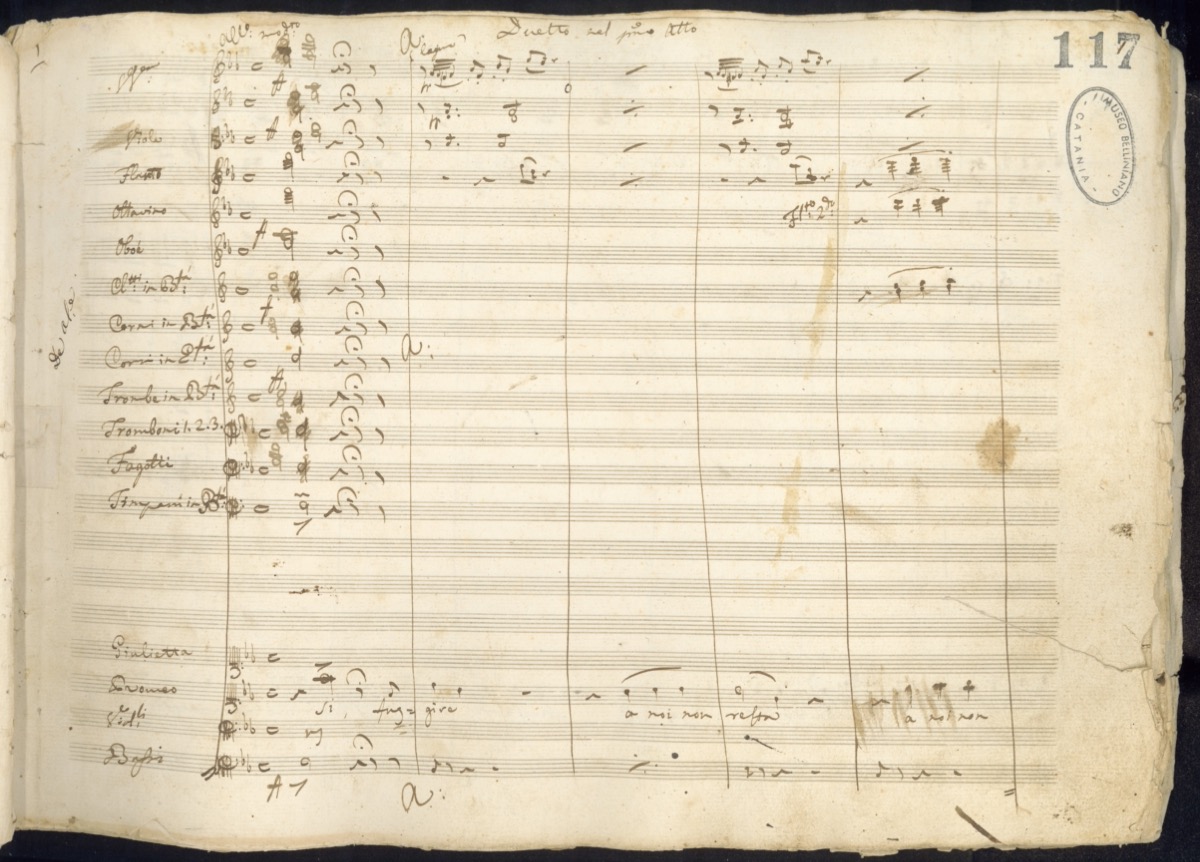 Duetto nel p:mo Atto
all:o mod:to
117
MUSEO BELLINIANO
- CATANIA -
Viole
Flauto
Ottavino
Fl:to 2:do
Oboè
Cl:tti in B:fà
Corni in B:fà
Corni in E:fà
Trombe in B:fà
Tromboni 1. 2. 3.
Fagotti
Timpani in B:fà
Giulietta
Romeo
Si, fug= gire a noi non resta a noi non
Bassi